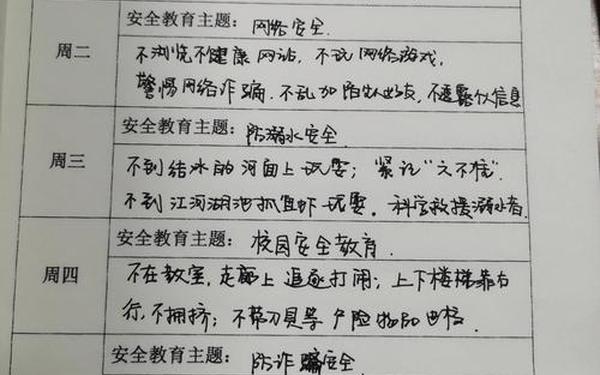 安全教育主题：网络安全.
周二
不浏览不健康网站，不玩网络游戏，
警惕网络诈骗.不乱加陌生人好友，不透露个人信息
安全教育主题：防溺水安全.
周三
不到结冰的河面上玩耍；紧记“六不准”.
不到江河湖池抓鱼虾玩耍。科学救援溺水者.
安全教育主题：校园安全教育.
周四
不在教室，走廊上追逐打闹；上下楼梯靠右
行，不拥挤；不带刀具等危险物品
安全教育主题：防诈骗安全.